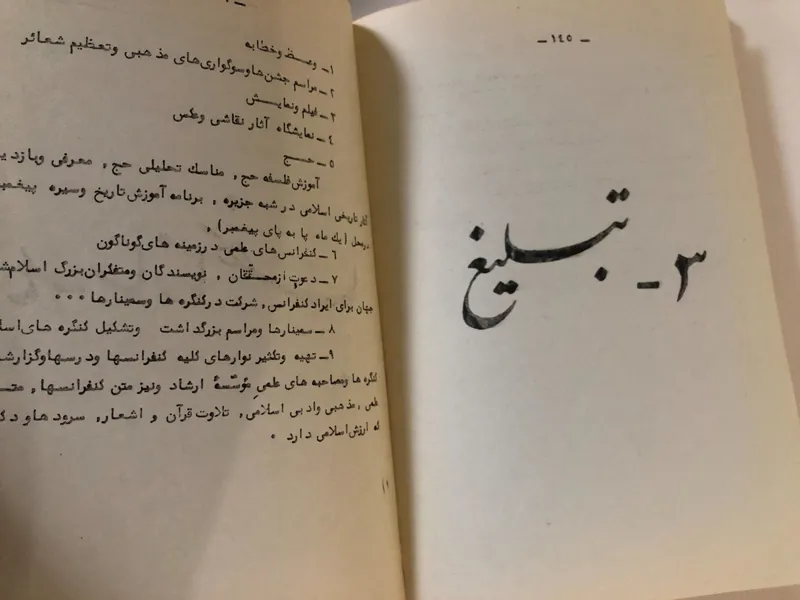 ۱ــ وعــظ وخطابه
۲ــ مراسم جشن‌ها وسوگواری‌های مذهبی وتعظیم شعائر
۳ــ فیلم ونمایــش
٤ــ نمایشگاه آثار نقاشی وعکس
۵ــ حــج
آموزش فلسفه حج , مناسك تحلیلی حج , معرفی وبازدید
آثار تاریخی اسلامی در شبه جزیره , برنامه آموزش تاریخ وسیره پیغمبر
درمحل (یك ماه پا به پای پیغمبر) ,
۶ــ کنفرانس‌های علمی درزمینه های گوناگون
۷ــ دعوت ازمحققان , نویسندگان ومتفکران بزرگ اسلام‌ش
جهان برای ایراد کنفرانس, شرکت درکنگره ها وسمینارها ۰۰۰
۸ــ سمینارها ومراسم بزرگداشت وتشکیل کنگره های‌اسلا
۹ــ تهیه وتکثیر نوارهای کلیه کنفرانسها ودرسهاوگزارش
کنگره ها ومصاحبه های علمی مؤسّسهٔ ارشاد ونیز متن کنفرانسها, متــ
علمی ,مذهبی وادبی اسلامی, تلاوت قرآن و اشعار, سرودهاو دک
که ارزش اسلامی دارد ۰
ــ ۱٤۵ ــ
۳ــ تبلیغ